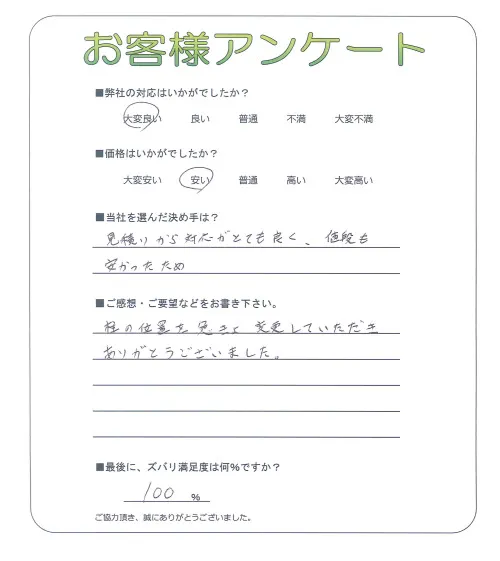 お客様アンケート
■弊社の対応はいかがでしたか？
大変良い 良い 普通 不満 大変不満
■価格はいかがでしたか？
大変安い 安い 普通 高い 大変高い
■当社を選んだ決め手は？
見積りから対応がとても良く、値段も
安かったため
■ご感想・ご要望などをお書き下さい。
柱の位置を 変更していただき
ありがとうございました。
■最後に、ズバリ満足度は何%ですか？
100 %
ご協力頂き、誠にありがとうございました。